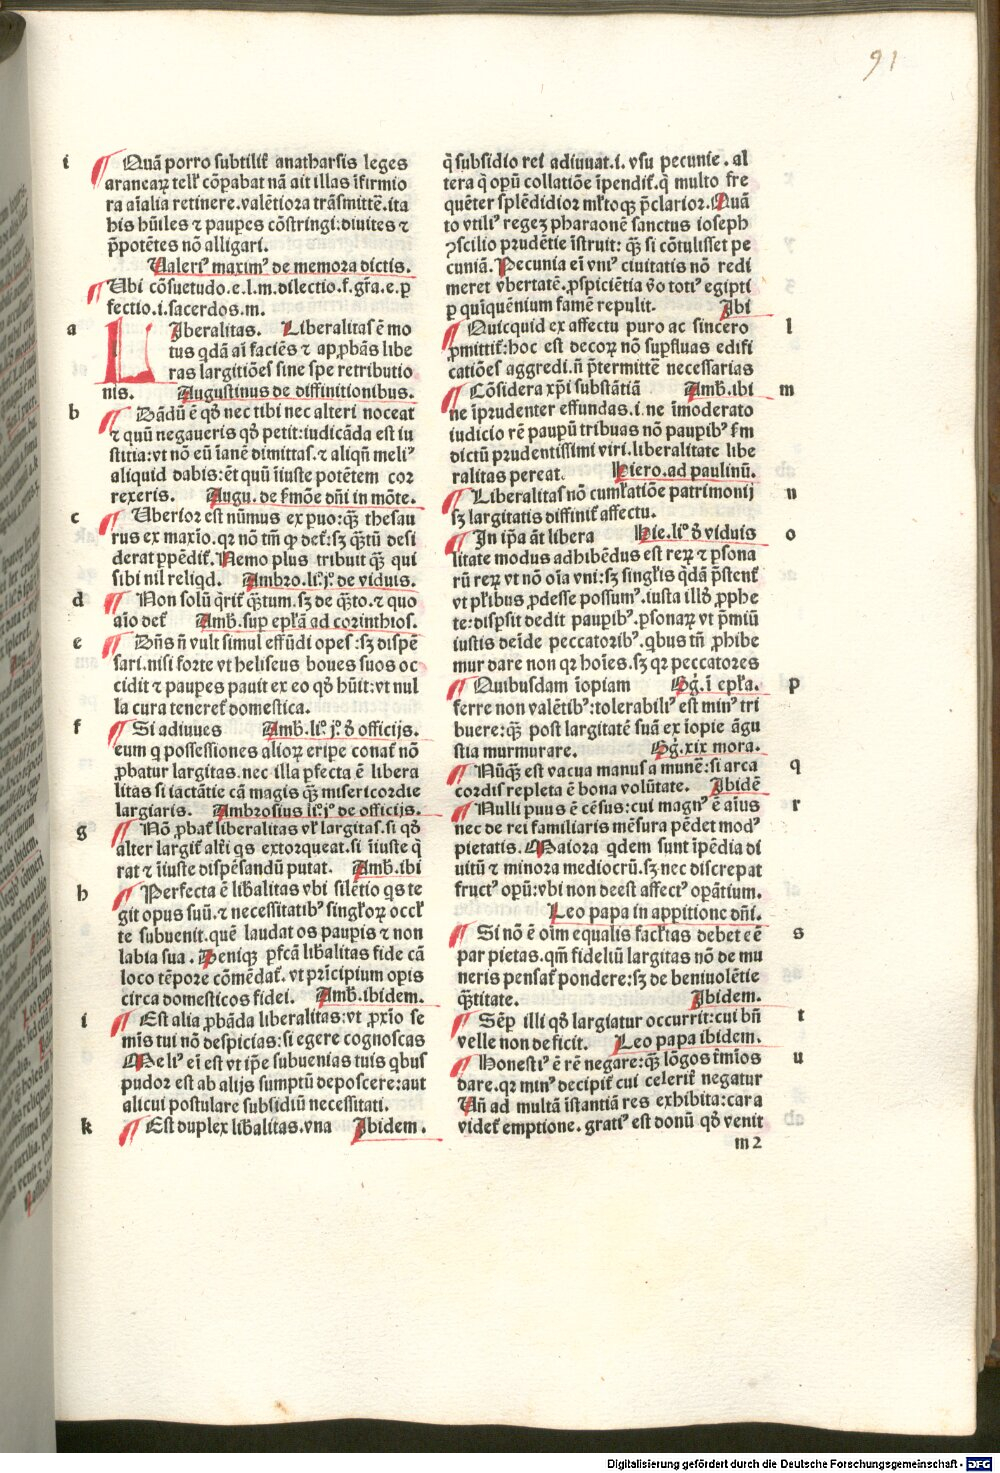 91
i
¶ Quā porro subtilit᷑ anatharsis leges
araneaꝝ tell᷑ cōpabat nā ait illas īfirmio
ra aīalia retinere. valētiora trāsmittē. ita
his hūiles ⁊ paupes cōstringi: diuites ⁊
p̄potētes nō alligari.
Ualeriꝰ maximꝰ de memora dictis.
¶ Ubi cōsuetudo. e. l. m. dilectio. f. gr̄a. e. p
fectio. i. sacerdos. m.
a
LIberalitas. Liberalitas ē mo
tus qdā aī faciēs ⁊ ap̱pbās libe
ras largitiōes sine spe retributio
nis. Augustinus de diffinitionibus.
b
¶ Dādū ē qð nec tibi nec alteri noceat
⁊ quū negaueris qð petit: iudicāda est iu
stitia: vt nō eū īanē dimittas. ⁊ aliqn̄ meliꝰ
aliquid dabis: ēt quū iiuste potētem cor
rexeris. Augu. de ẜmōe dn̄i in mōte.
c
¶ Uberior est nūmus ex puo: qꝫ̄ thesau
rus ex maxīo. qr nō tm̄ qͦ det᷑: sꝫ qꝫ̄tū desi
derat ꝑpēdit᷑. Nemo plus tribuit qꝫ̄ qui
sibi nil reliqd. Ambro. li°. j°. de viduis.
d
¶ Non solū q̄rit᷑ qꝫ̄tum. sꝫ de qꝫ̄to. ⁊ quo
aīo det᷑ Amb̄. sup epl̄ā ad corinthios.
e
¶ Dn̄s n̄ vult simul effūdi opes: sꝫ dispē
sari. nisi forte vt heliseus boues suos oc
cidit ⁊ paupes pauit ex eo qð hūit: vt nul
la cura teneret᷑ domestica.
f
¶ Si adiuues Amb̄. li°. j°. ð officijs.
eum q possessiones alioꝝ eripe conat᷑ nō
ꝓbatur largitas. nec illa pfecta ē libera
litas si iactātie cā magis qꝫ̄ misericordie
largiaris. Ambrosius li°. j° de officijs.
g
¶ Nō ꝓbat᷑ liberalitas vl᷑ largitas. si qð
alter largit᷑ alt᷑i qs extorqueat. si iiuste q̄
rat ⁊ iiuste dispēsandū putat. Amb̄. ibi
h
¶ Perfecta ē lib̄alitas vbi silētio qs te
git opus suū. ⁊ necessitatibꝰ singl᷑oꝝ occl᷑
te subuenit. quē laudat os paupis ⁊ non
labia sua. Deniqꝫ pfcā lib̄alitas fide cā
loco tēpore cōmēdat᷑. vt prīcipium opis
circa domesticos fidei. Amb̄. ibidem.
i
¶ Est alia ꝓbāda liberalitas: vt ꝓxīo se
mīs tui nō despicias: si egere cognoscas
Meliꝰ eī est vt ip̄e subuenias tuis qbus
pudor est ab alijs sumptū deposcere: aut
alicui postulare subsidiū necessitati.
k
¶ Est duplex lib̄alitas. vna Ibidem.
q̄ subsidio rei adiuuat. i. vsu pecunie. al
tera q̄ opū collatiōe īpendit᷑. q̄ multo fre
quēter splēdidior ml᷑toqꝫ p̄clarior. Quā
to vtiliꝰ regeꝫ pharaonē sanctus ioseph
ꝯscilio prudētie īstruit: qꝫ̄ si cōtulisset pe
cuniā. Pecunia eī vniꝰ ciuitatis nō redi
meret vbertatē. ꝓspiciētia v̄o totiꝰ egipti
p quīquēnium famē repulit. Ibi
l
¶ Quicquid ex affectu puro ac sincero
ꝓmittit᷑: hoc est decoꝝ nō supfluas edifi
catiōes aggredi. n̄ p̄termittē necessarias
m
¶ Cōsidera xp̄i substātiā Amb̄. ibi
ne īprudenter effundas. i. ne īmoderato
iudicio rē paupū tribuas nō paupibꝰ ẜm
dictū prudentissimi viri. liberalitate libe
ralitas pereat. Hiero. ad paulinū.
n
¶ Liberalitas nō cuml᷑atiōe patrimonij
sꝫ largitatis diffinit᷑ affectu.
o
¶ In ip̄a āt libera Hie. li°. ð viduis
litate modus adhibēdus est reꝝ ⁊ psona
rū reꝝ vt nō oīa vni: sꝫ singl᷑is qdā p̄stent᷑
vt pl᷑ibus ꝓdesse possumꝰ. iusta illð ꝓphe
te: dispsit dedit paupibꝰ. psonaꝝ vt p̄miū
iustis deīde peccatoribꝰ. qbus tn̄ ꝓhibe
mur dare non qr hoīes. sꝫ qr peccatores
p
¶ Quibusdam īopiam Gg̊. ī epl̄a.
ferre non valētibꝰ: tolerabiliꝰ est minꝰ tri
buere: qꝫ̄ post largitatē suā ex īopie āgu
stia murmurare. Gg̊. xix mora.
q
¶ Nūqꝫ̄ est vacua manus a munē: si arca
cordis repleta ē bona volūtate. Ibidē
r
¶ Nulli puus ē cēsus: cui magnꝰ ē aīus
nec de rei familiaris mēsura pēdet modꝰ
pietatis. Maiora qdem sunt īpēdia di
uitū ⁊ minora mediocrū. sꝫ nec discrepat
fructꝰ opū: vbi non deest affectꝰ opātium.
Leo papa in appitione dn̄i.
s
¶ Si nō ē oīm equalis facl᷑tas debet eē
par pietas. qm̄ fideliū largitas nō de mu
neris pensat᷑ pondere: sꝫ de beniuolētie
qꝫ̄titate. Ibidem.
t
¶ Sēp illi qð largiatur occurrit: cui bn̄
velle non deficit. Leo papa ibidem.
u
¶ Honestiꝰ ē rē negare: qꝫ̄ lōgos t̄mīos
dare. qr minꝰ decipit᷑ cui celerit᷑ negatur
Un̄ ad multā īstantiā res exhibita: cara
videt᷑ emptione. gratiꝰ est donū qð venit
m2
Digitalisierung gefördert durch die Deutsche Forschungsgemeinschaft - DFG